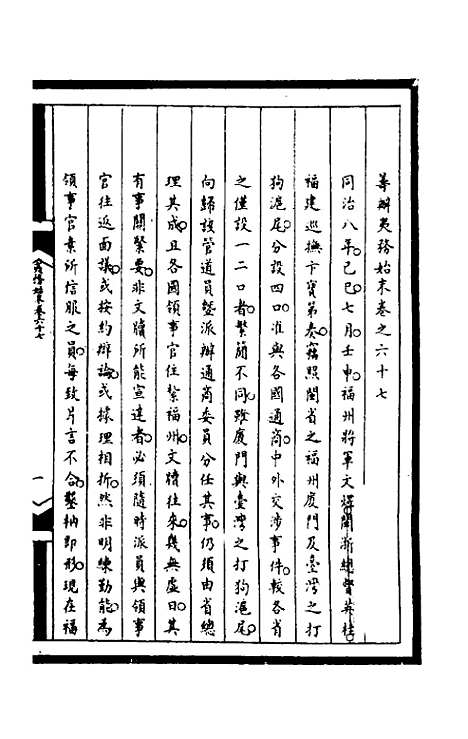 籌辦夷務始末卷之六十七
同治八年己巳七月壬申福州將軍文煜閩浙總督英桂
福建巡撫卞寶第奏竊照閩省之福州廈門及臺灣之打
狗滬尾分設四口准與各國通商中外交涉事件較各省
之僅設一二口者繁簡不同雖廈門與臺灣之打狗滬尾
向歸該管道員暨派辦通商委員分任其事仍須由省總
理其成且各國領事官住紮福州文牘往來幾無虛日其
有事關緊要非文牘所能宣達者必須隨時派員與領事
官往返面議或按約辯論或據理相折然非明練勤能為
領事官素所信服之員每致片言不合鑿枘即形現在福
六十七
一